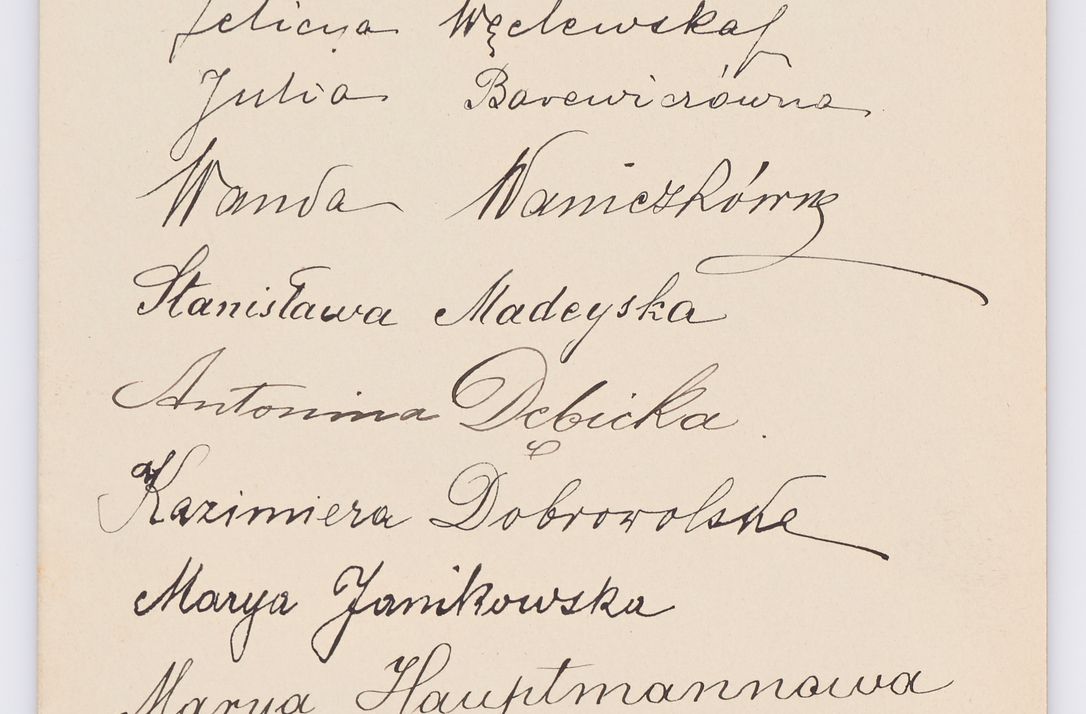 Felicya Węclewska
Julia Barewiczówna
Wanda Waniczkówna
Stanisława Madeyska
Antonina Dębicka.
Kazimiera Dobrowolska
Marya Janikowska
Marya Hauptmannowa